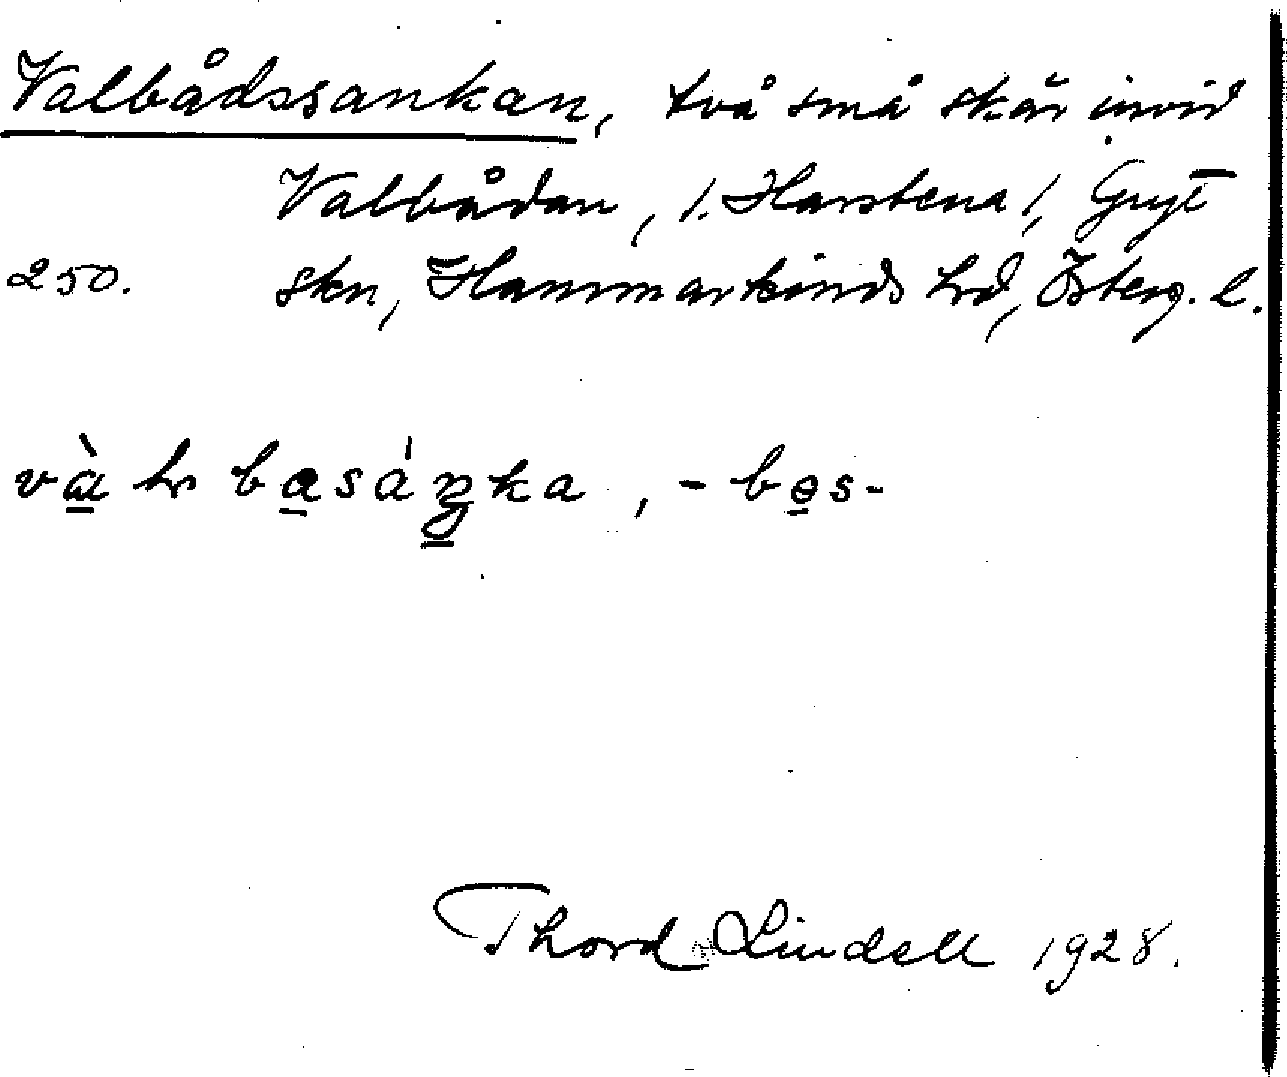 Valbådssankan, två små skär invid
Valbådan, /. Harstena /, Gryt
250. skn, Hammarkinds hd, Österg. l.
basáŋka, -bǝs-
Thord Lindell 1928.